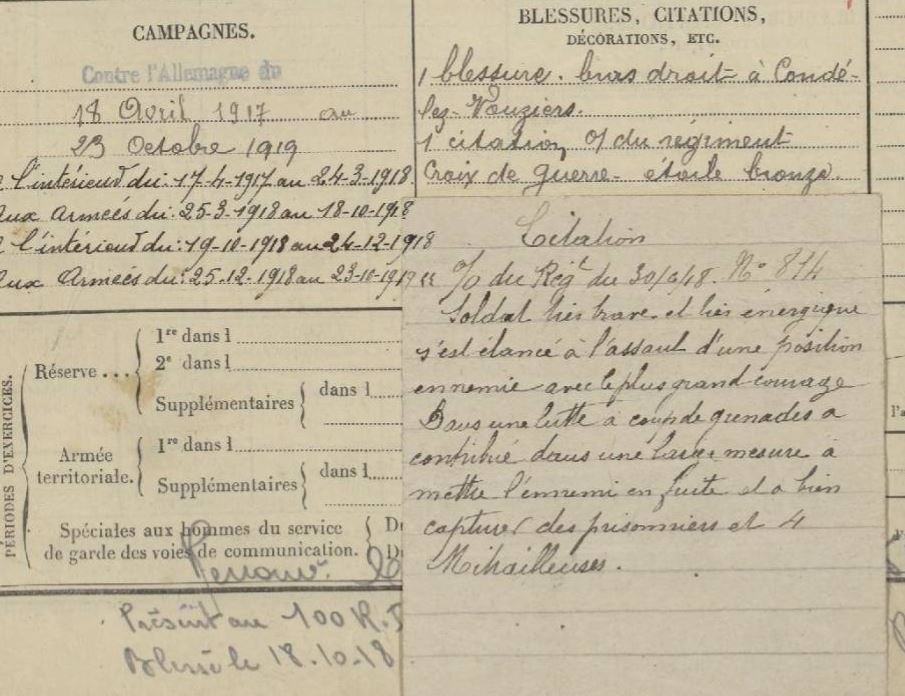 CAMPAGNES.
Contre l'Allemagne du
18 Avril 1917 au
23 Octobre 1919
l'intérieur du: 17-4-1917 au 24-3-1918
aux Armées du: 25-3-1918 au 18-10-1918
l'intérieur du: 19-10-1918 au 24-12-1918
aux Armées du: 25-12-1918 au 23-10-1919
BLESSURES, CITATIONS,
DÉCORATIONS, ETC.
1 blessure. bras droit à Condé-
lez-Vouziers.
1 citation O/ du régiment
Croix de guerre - étoile bronze
Citation
O/ du Régt du 30/6/18. No 814
Soldat très brave et très énergique
s'est élancé à l'assaut d'une position
ennemie avec le plus grand courage
Dans une lutte à coup de grenades a
contribué dans une large mesure à
mettre l'ennemi en fuite et a bien
capturer des prisonniers et 4
Mitrailleuses.
PÉRIODES D'EXERCICES.
Réserve...
1re dans l
2e dans l
Supplémentaires
dans l
Armée
territoriale.
1re dans l
Supplémentaires
dans l
Spéciales aux hommes du service
de garde des voies de communication.
Présent au 100 R.
Blessé le 18.10.18